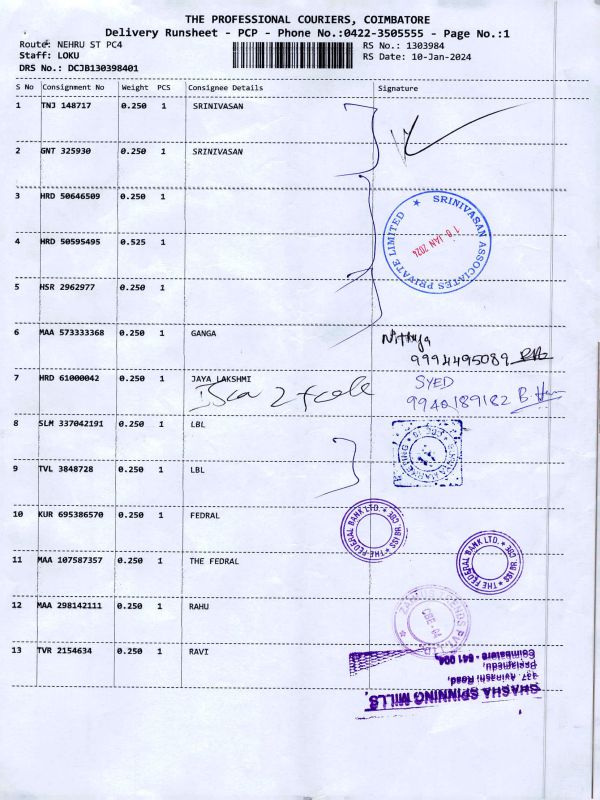 THE PROFESSIONAL COURIERS, COIMBATORE
Delivery Runsheet - PCP - Phone No.:0422-3505555 - Page No.:1
Route: NEHRU ST PC4
RS No.: 1303984
Staff: LOKU
RS Date: 10-Jan-2024
DRS No.: DCJB130398401
S No Consignment No Weight PCS Consignee Details Signature
1 TNJ 148717 0.250 1 SRINIVASAN
2 GNT 325930 0.250 1 SRINIVASAN
3 HRD 50646509 0.250 1
SRINIVASAN ASSOCIATES PRIVATE LIMITED
10 JAN 2024
4 HRD 50595495 0.525 1
5 HSR 2962977 0.250 1
6 MAA 573333368 0.250 1 GANGA Nithya
9994495089
7 HRD 61000042 0.250 1 JAYA LAKSHMI SYED
9940189182
8 SLM 337042191 0.250 1 LBL
9 TVL 3848728 0.250 1 LBL
10 KUR 695386570 0.250 1 FEDRAL
THE FEDERAL BANK LTD. SSI BR. CBE
11 MAA 107587357 0.250 1 THE FEDRAL
THE FEDERAL BANK LTD. SSI BR. CBE
12 MAA 298142111 0.250 1 RAHU
13 TVR 2154634 0.250 1 RAVI
SHASHA SPINNING MILLS,
Avinashi Road,
Peelamedu,
Coimbatore - 641 004.